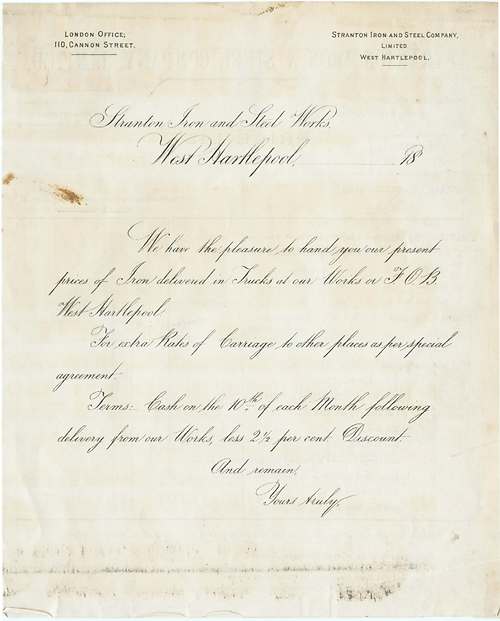 London Office;
110, Cannon Street.
Stranton Iron and Steel Company,
Limited
West Hartlepool.
Stranton Iron and Steel Works,
West Hartlepool, 18
We have the pleasure to hand you our present
prices of Iron delivered in Trucks at our Works or F.O.B.
West Hartlepool.
For extra Rates of Carriage to other places as per special
agreement.
Terms:- Cash on the 10th of each Month following
delivery from our Works, less 2½ per cent Discount.
And remain,
Yours truly,